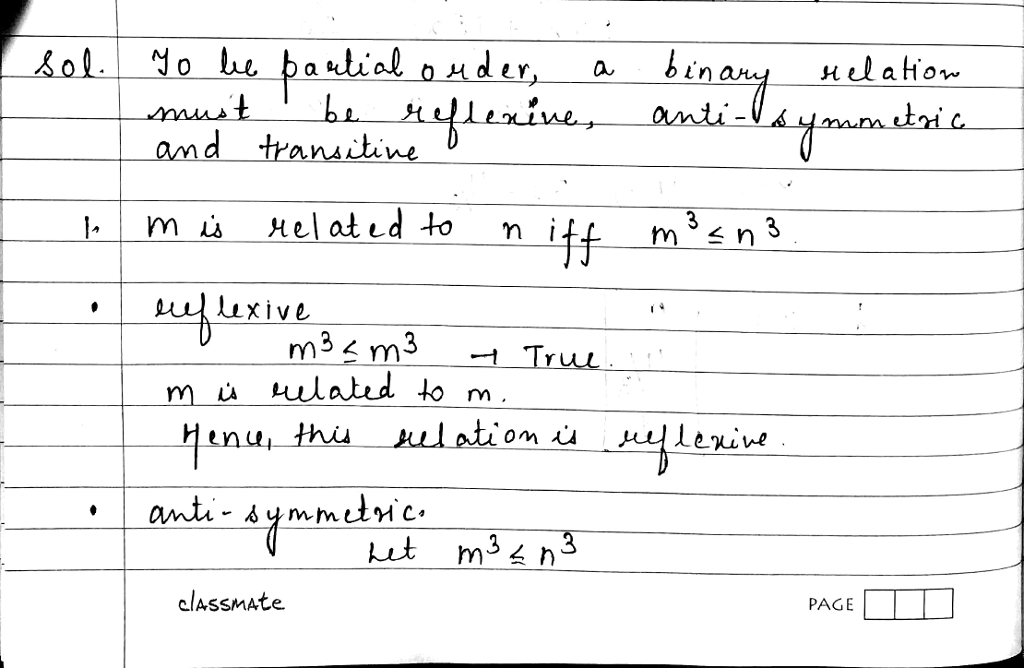 Sol. To be partial order, a binary relation
must be reflexive, anti-symmetric
and transitive
1. m is related to n iff m³ ≤ n³.
• reflexive
m³ ≤ m³ → True.
m is related to m.
Hence, this relation is reflexive.
• anti-symmetric.
Let m³ ≤ n³
classmate
PAGE